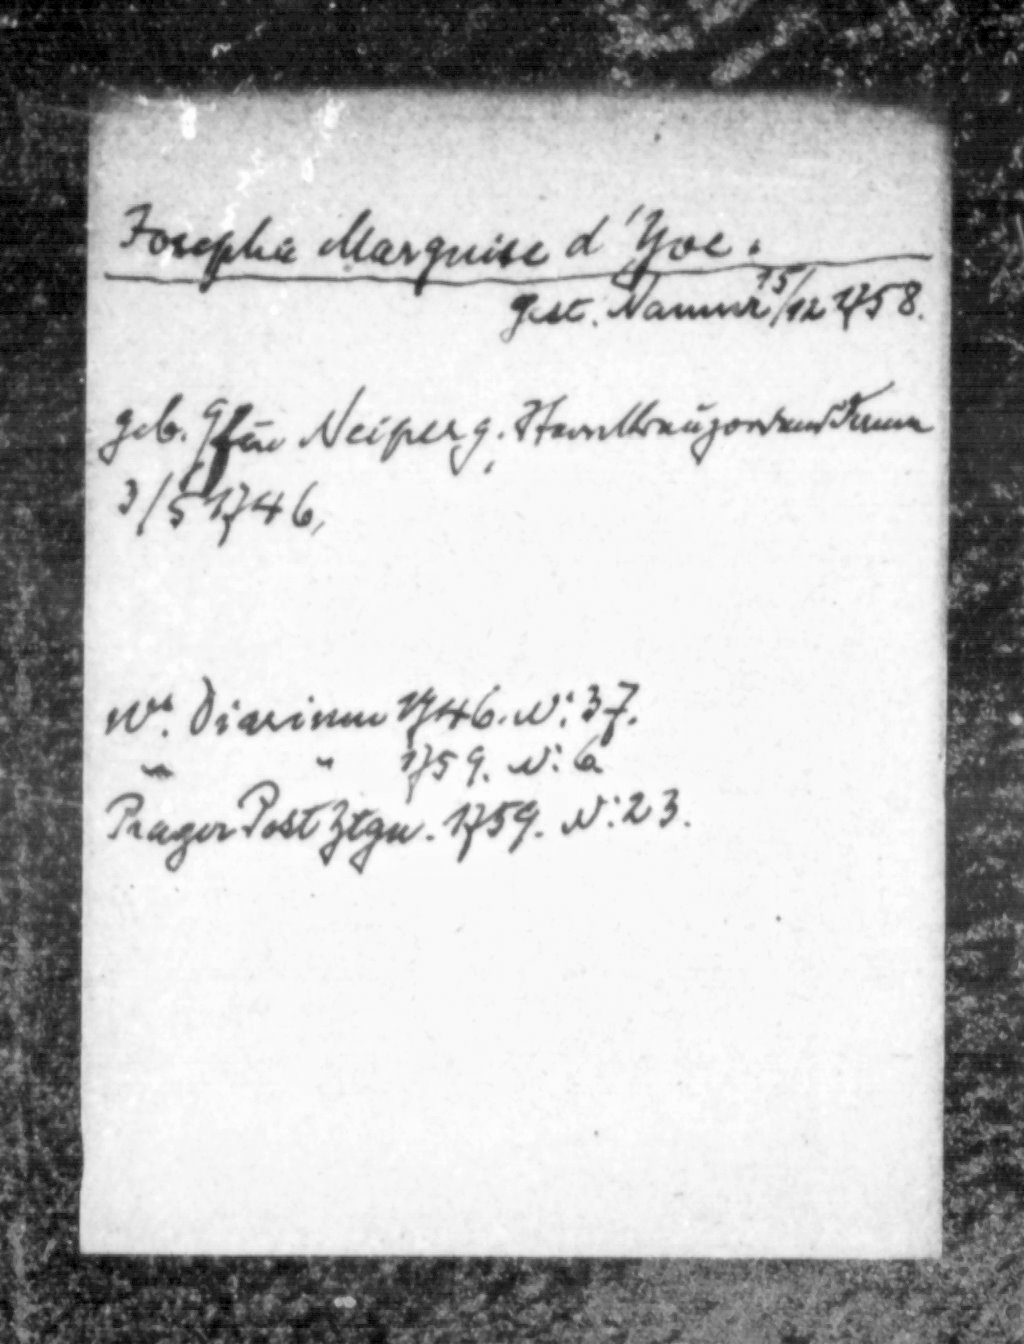 Josepha Marquise d'Yve.
gest. Namur 15/12 1758.
geb. Gfin Neiperg. Sternkreuzordens Dame
3/5 1746,
Wr. Diarium 1746. N: 37.
" " 1759. N: 6.
Prager Post Ztgn. 1759. N: 23.